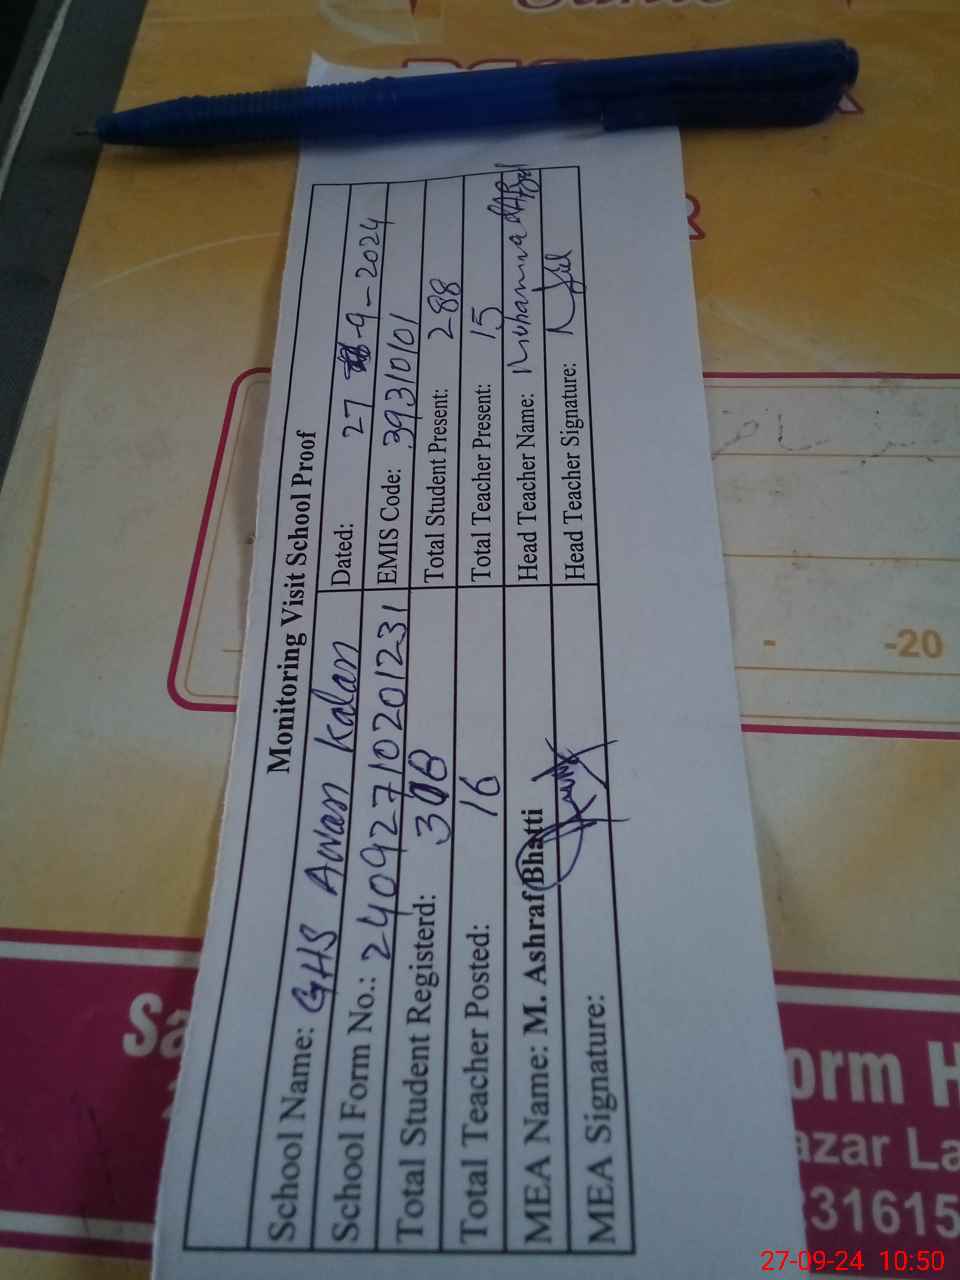 Monitoring Visit School Proof
School Name: GHS Awan Kalan
Dated: 27-9-2024
School Form No.: 24092710201231
EMIS Code: 39310101
Total Student Registerd:
Total Student Present: 288
Total Teacher Posted: 16
Total Teacher Present: 15
MEA Name: M. Ashraf Bhatti
Head Teacher Name: Muhammad
MEA Signature:
Head Teacher Signature:
-
-20
Sa
orm H
azar La
31615
27-09-24 10:50